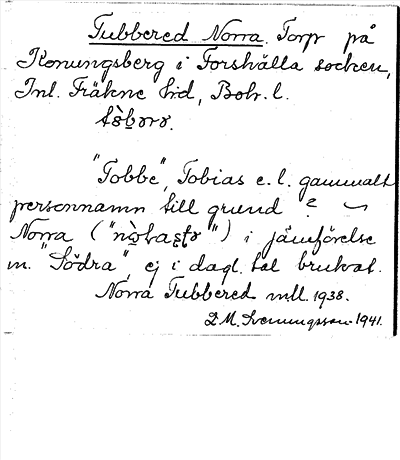 Tubbered Norra. Torp på
Konungsberg i Forshälla socken,
Inl. Fräkne hd, Boh. l.
"Tobbe", Tobias e. l. gammalt
personnamn till grund? ~
Norra ( ") i jämförelse
m. "Södra", ej i dagl. tal brukat.
Norra Tubbered mtl. 1938.
D. M. 1941.